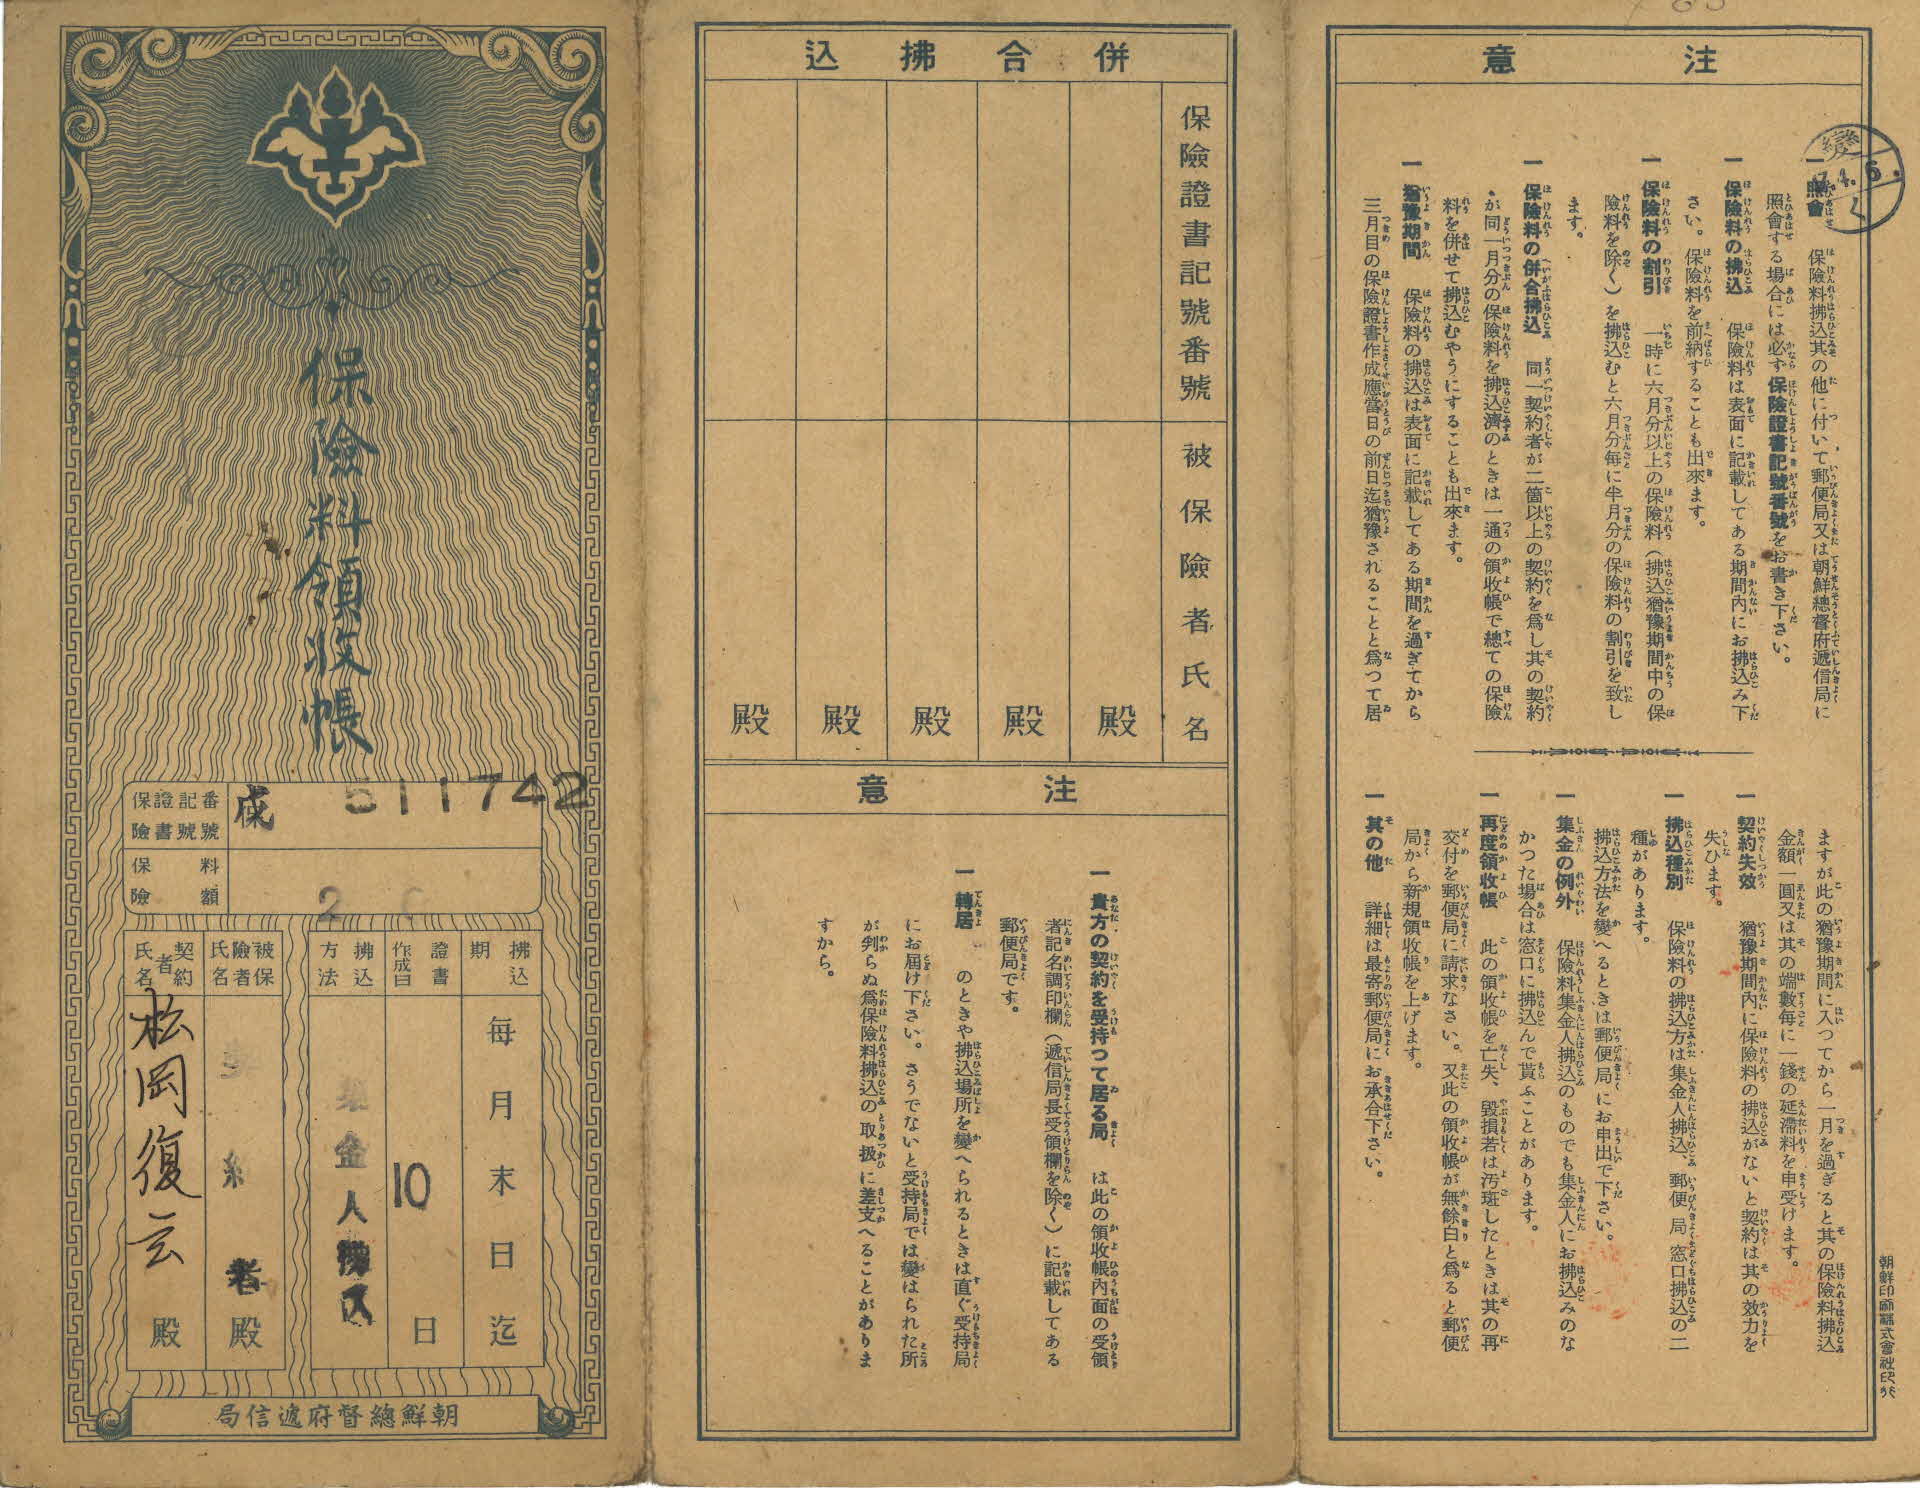 保險料領收帳
保險證書記號番號
511742
保險料額
2
拂込期
每月末日迄
證書作成日
10日
拂込方法
集金人拂込
被保險者氏名
契約者殿
契約者氏名
松岡復云殿
朝鮮總督府遞信局
併合拂込
保險證書記號番號
被保險者氏名
殿
殿
殿
殿
殿
注意
一 貴方の契約を受持つて居る局 は此の領收帳內面の受領
者記名調印欄(遞信局長受領欄を除く)に記載してある
郵便局です。
一 轉居 のときや拂込場所を變へられるときは直ぐ受持局
にお屆け下さい。さうでないと受持局では變はられた所
が判らぬ爲保險料拂込の取扱に差支へることがありま
すから。
注意
一 照會 保險料拂込其の他に付いて郵便局又は朝鮮總督府遞信局に
照會する場合には必ず保險證書記號番號をお書き下さい。
一 保險料の拂込 保險料は表面に記載してある期間內にお拂込み下
さい。保險料を前納することも出來ます。
一 保險料の割引 一時に六月分以上の保險料(拂込猶豫期間中の保
險料を除く)を拂込むと六月分每に半月分の保險料の割引を致し
ます。
一 保險料の併合拂込 同一契約者が二箇以上の契約を爲し其の契約
が同一月分の保險料を拂込濟のときは一通の領收帳で總ての保險
料を併せて拂込むやうにすることも出來ます。
一 猶豫期間 保險料の拂込は表面に記載してある期間を過ぎてから
三月目の保險證書作成應當日の前日迄猶豫されることと爲つて居
ますが此の猶豫期間に入つてから一月を過ぎると其の保險料拂込
金額一圓又は其の端數每に一錢の延滯料を申受けます。
一 契約失效 猶豫期間內に保險料の拂込がないと契約は其の效力を
失ひます。
一 拂込種別 保險料の拂込方は集金人拂込、郵便局窓口拂込の二
種があります。
拂込方法を變へるときは郵便局にお申出で下さい。
一 集金の例外 保險料集金人拂込のものでも集金人にお拂込みのな
かつた場合は窓口に拂込んで貰ふことがあります。
一 再度領收帳 此の領收帳を亡失、毀損若は汚斑したときは其の再
交付を郵便局に請求なさい。又此の領收帳が無餘白と爲ると郵便
局から新規領收帳を上げます。
一 其の他 詳細は最寄郵便局にお承合下さい。
朝鮮印刷株式會社印行